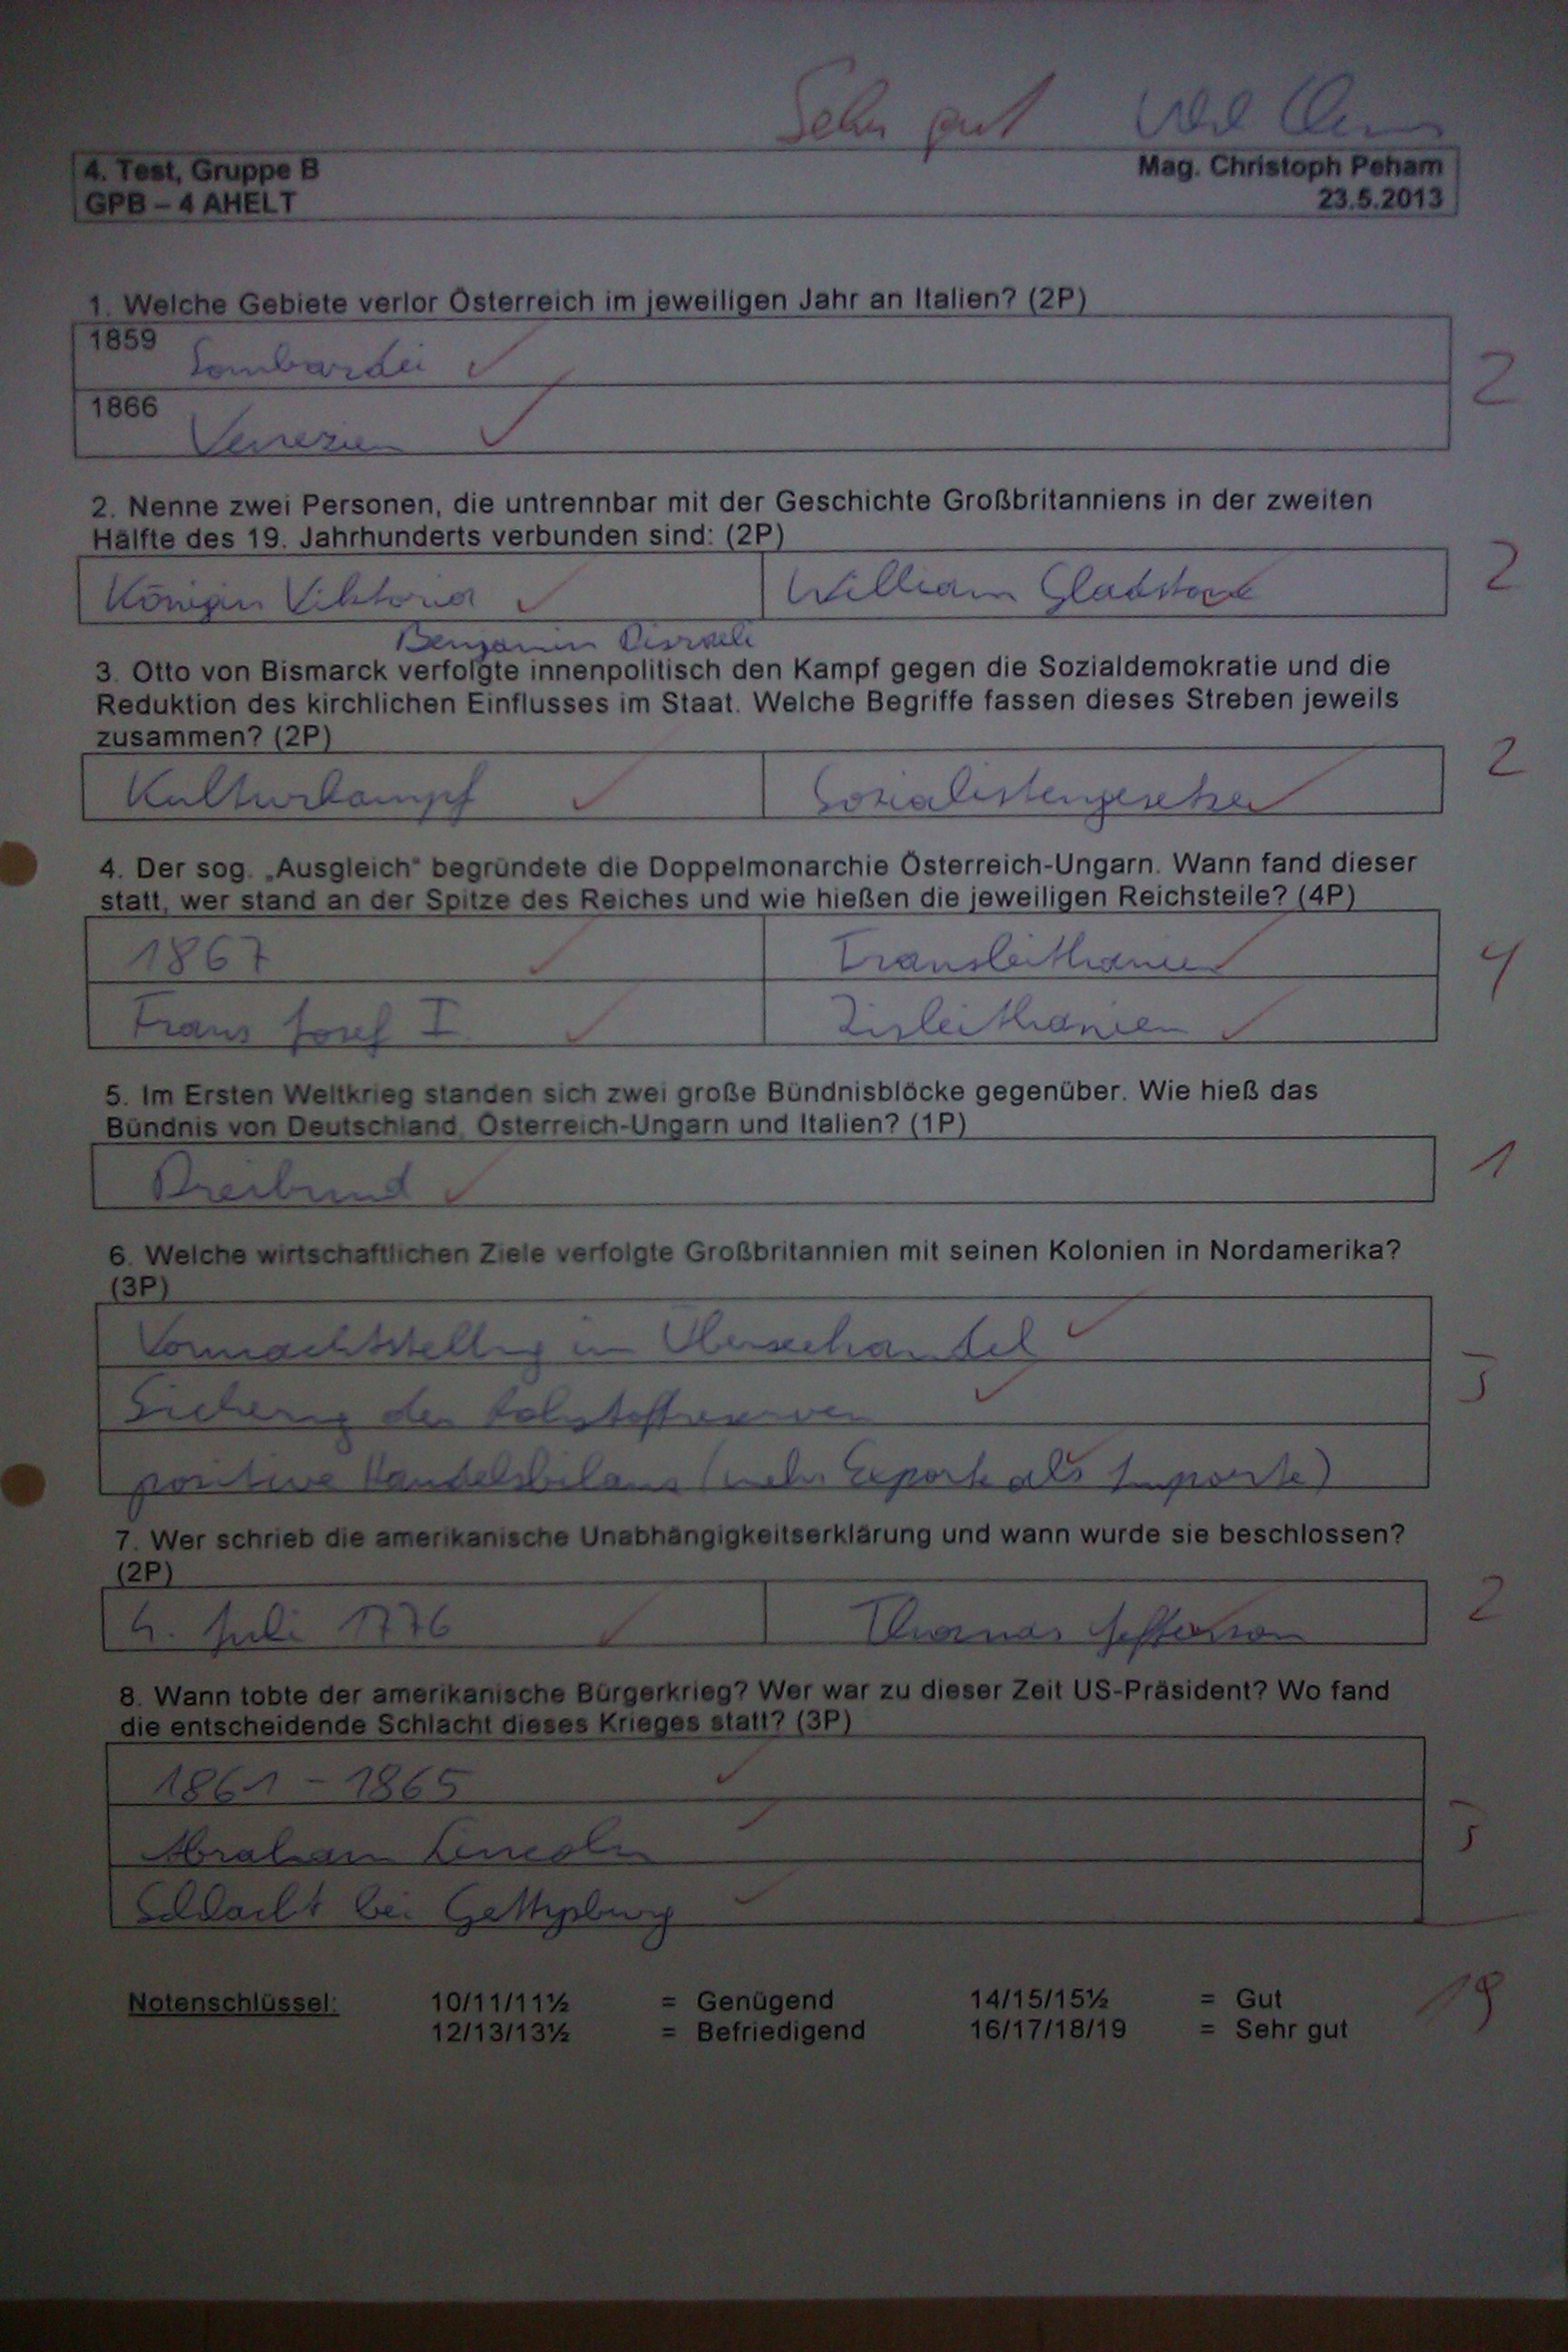 Sehr gut
4. Test, Gruppe B Mag. Christoph Peham
GPB – 4 AHELT 23.5.2013
1. Welche Gebiete verlor Österreich im jeweiligen Jahr an Italien? (2P)
1859 Lombardei
2
1866 Venezien
2. Nenne zwei Personen, die untrennbar mit der Geschichte Großbritanniens in der zweiten
Hälfte des 19. Jahrhunderts verbunden sind: (2P)
Königin Viktoria William Gladstone 2
Benjamin Disraeli
3. Otto von Bismarck verfolgte innenpolitisch den Kampf gegen die Sozialdemokratie und die
Reduktion des kirchlichen Einflusses im Staat. Welche Begriffe fassen dieses Streben jeweils
zusammen? (2P)
Kulturkampf Sozialistengesetze 2
4. Der sog. „Ausgleich“ begründete die Doppelmonarchie Österreich-Ungarn. Wann fand dieser
statt, wer stand an der Spitze des Reiches und wie hießen die jeweiligen Reichsteile? (4P)
1867 Transleithanien
4
Franz Josef I. Zisleithanien
5. Im Ersten Weltkrieg standen sich zwei große Bündnisblöcke gegenüber. Wie hieß das
Bündnis von Deutschland, Österreich-Ungarn und Italien? (1P)
Dreibund 1
6. Welche wirtschaftlichen Ziele verfolgte Großbritannien mit seinen Kolonien in Nordamerika?
(3P)
Vormachtstellung im Überseehandel
Sicherung der Rohstoffreserven 3
positive Handelsbilanz (mehr Exporte als Importe)
7. Wer schrieb die amerikanische Unabhängigkeitserklärung und wann wurde sie beschlossen?
(2P)
4. Juli 1776 Thomas Jefferson 2
8. Wann tobte der amerikanische Bürgerkrieg? Wer war zu dieser Zeit US-Präsident? Wo fand
die entscheidende Schlacht dieses Krieges statt? (3P)
1861 – 1865
Abraham Lincoln 3
Schlacht bei Gettysburg
Notenschlüssel: 10/11/11½ = Genügend 14/15/15½ = Gut 19
12/13/13½ = Befriedigend 16/17/18/19 = Sehr gut